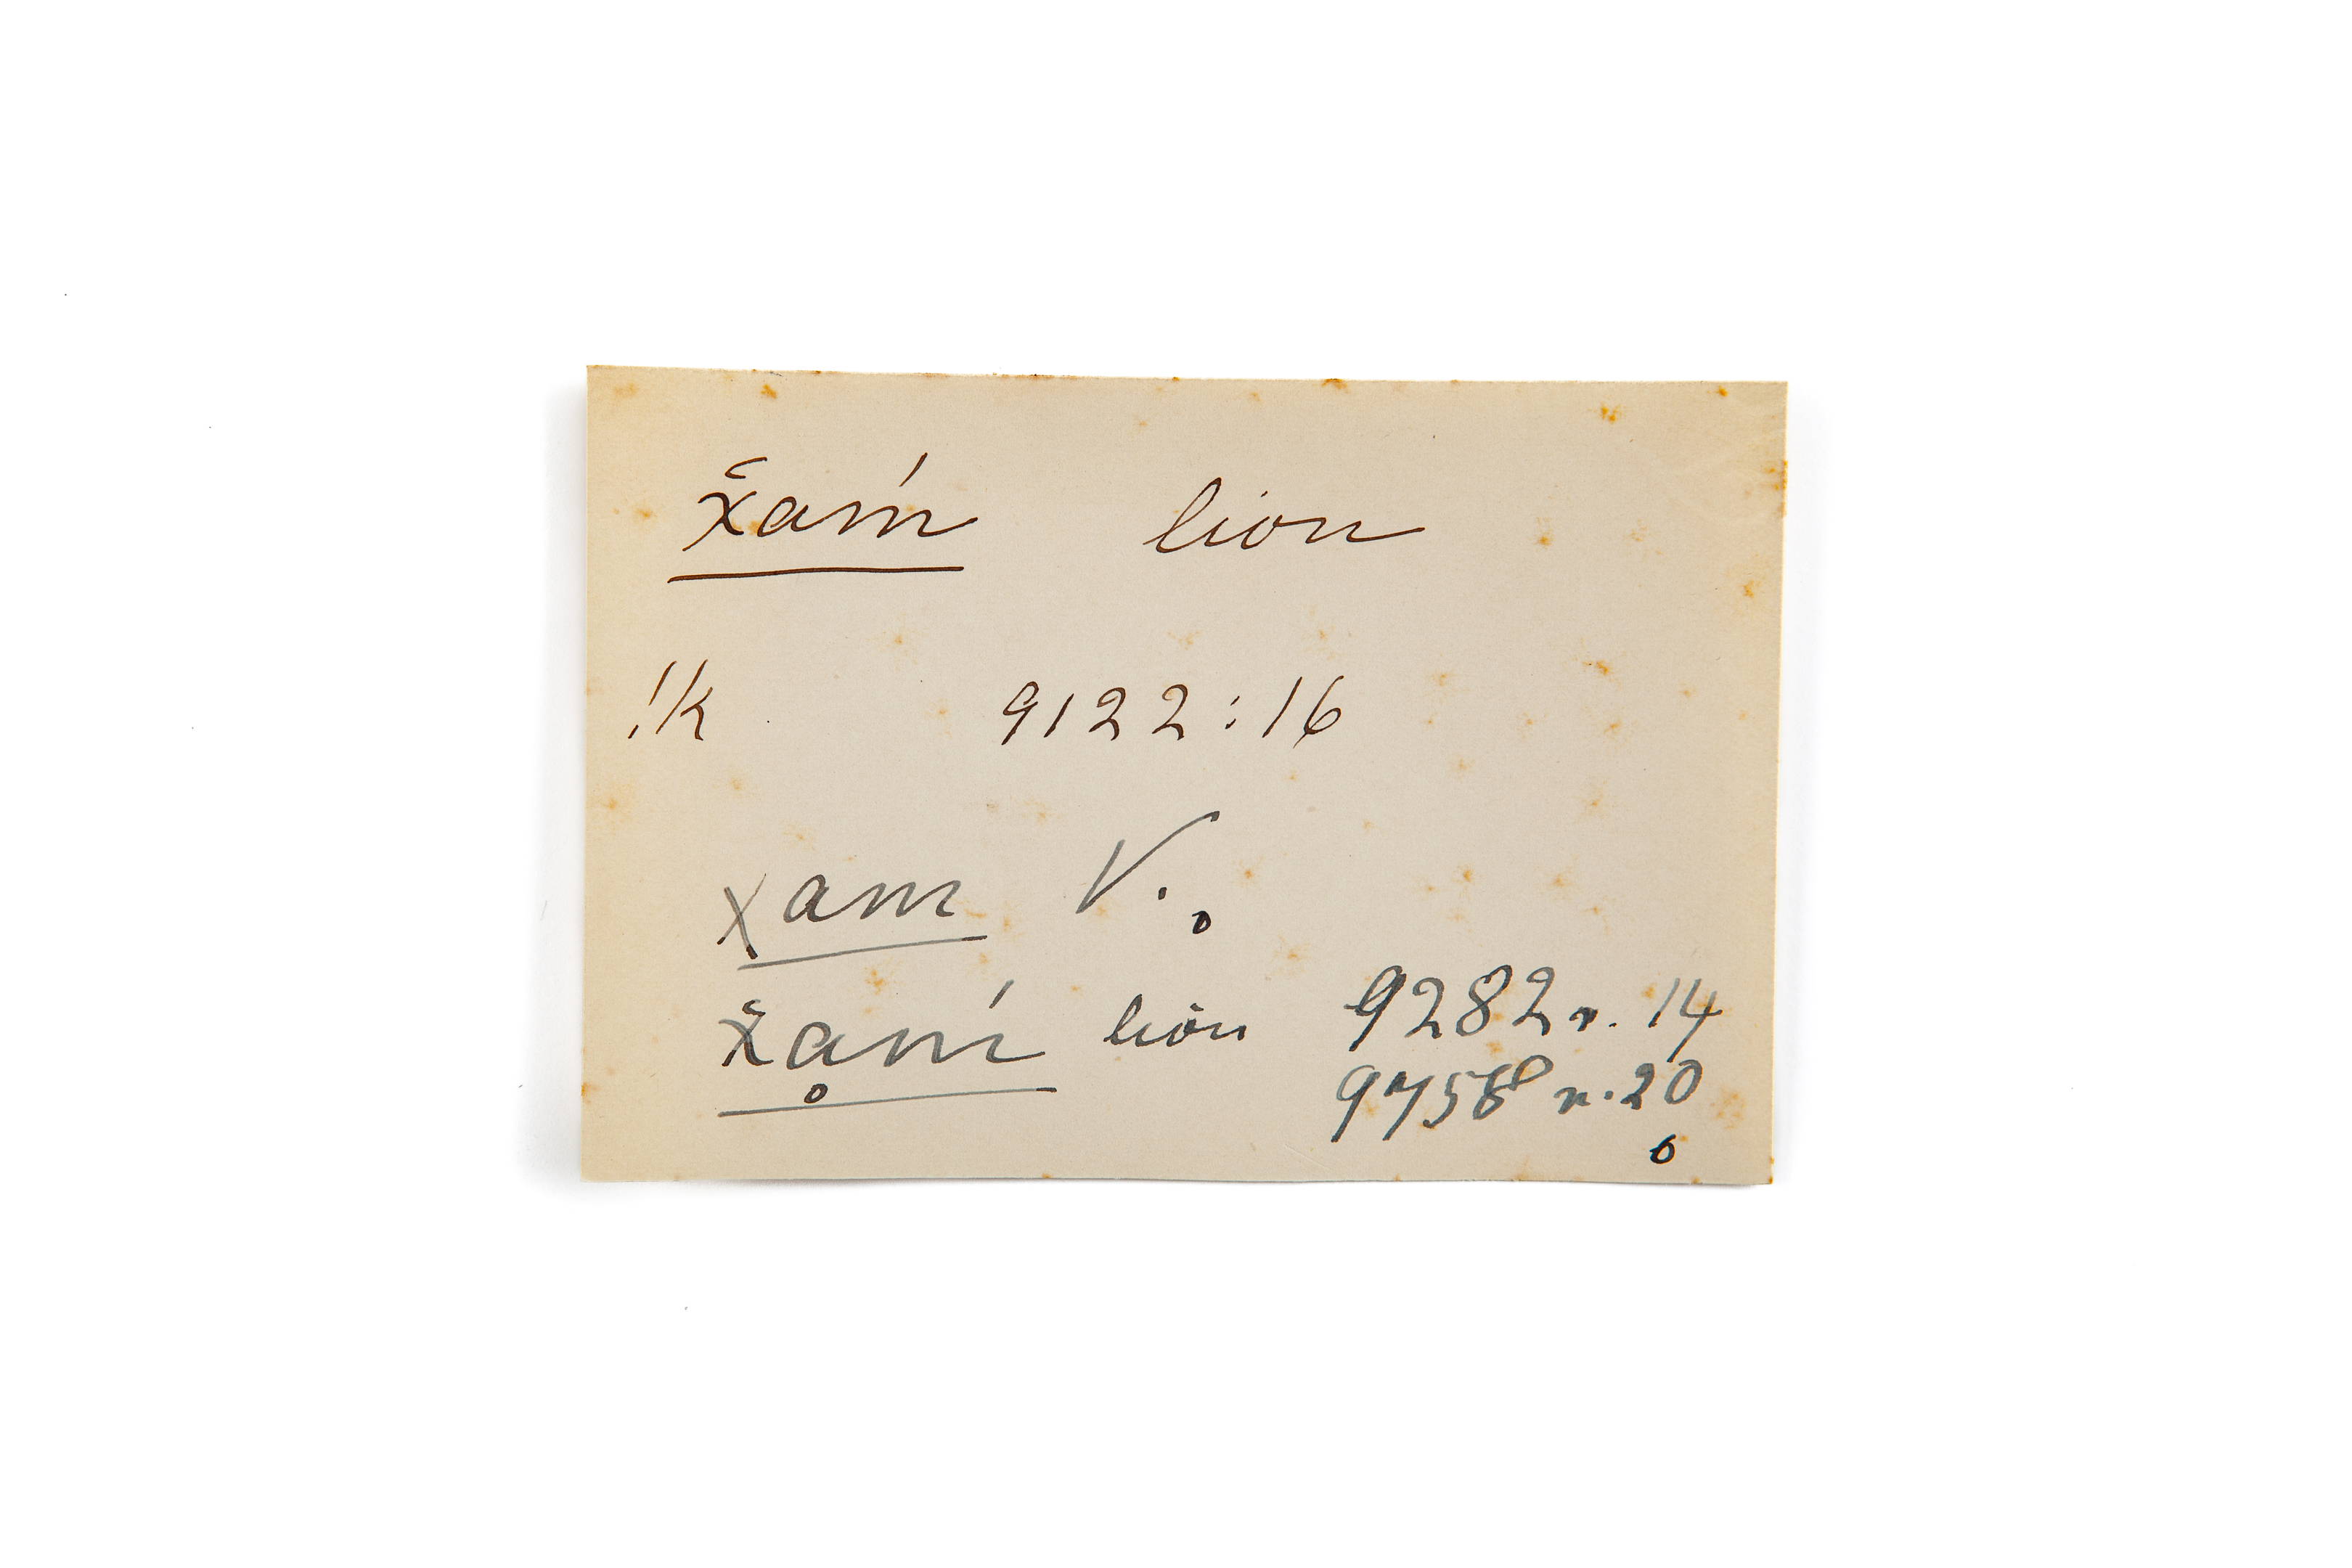 x̆ am̍ lion
!k 9122:16
xam V.
x̆ḁm̍ lion 9282 r. 14
9758 r. 20
6